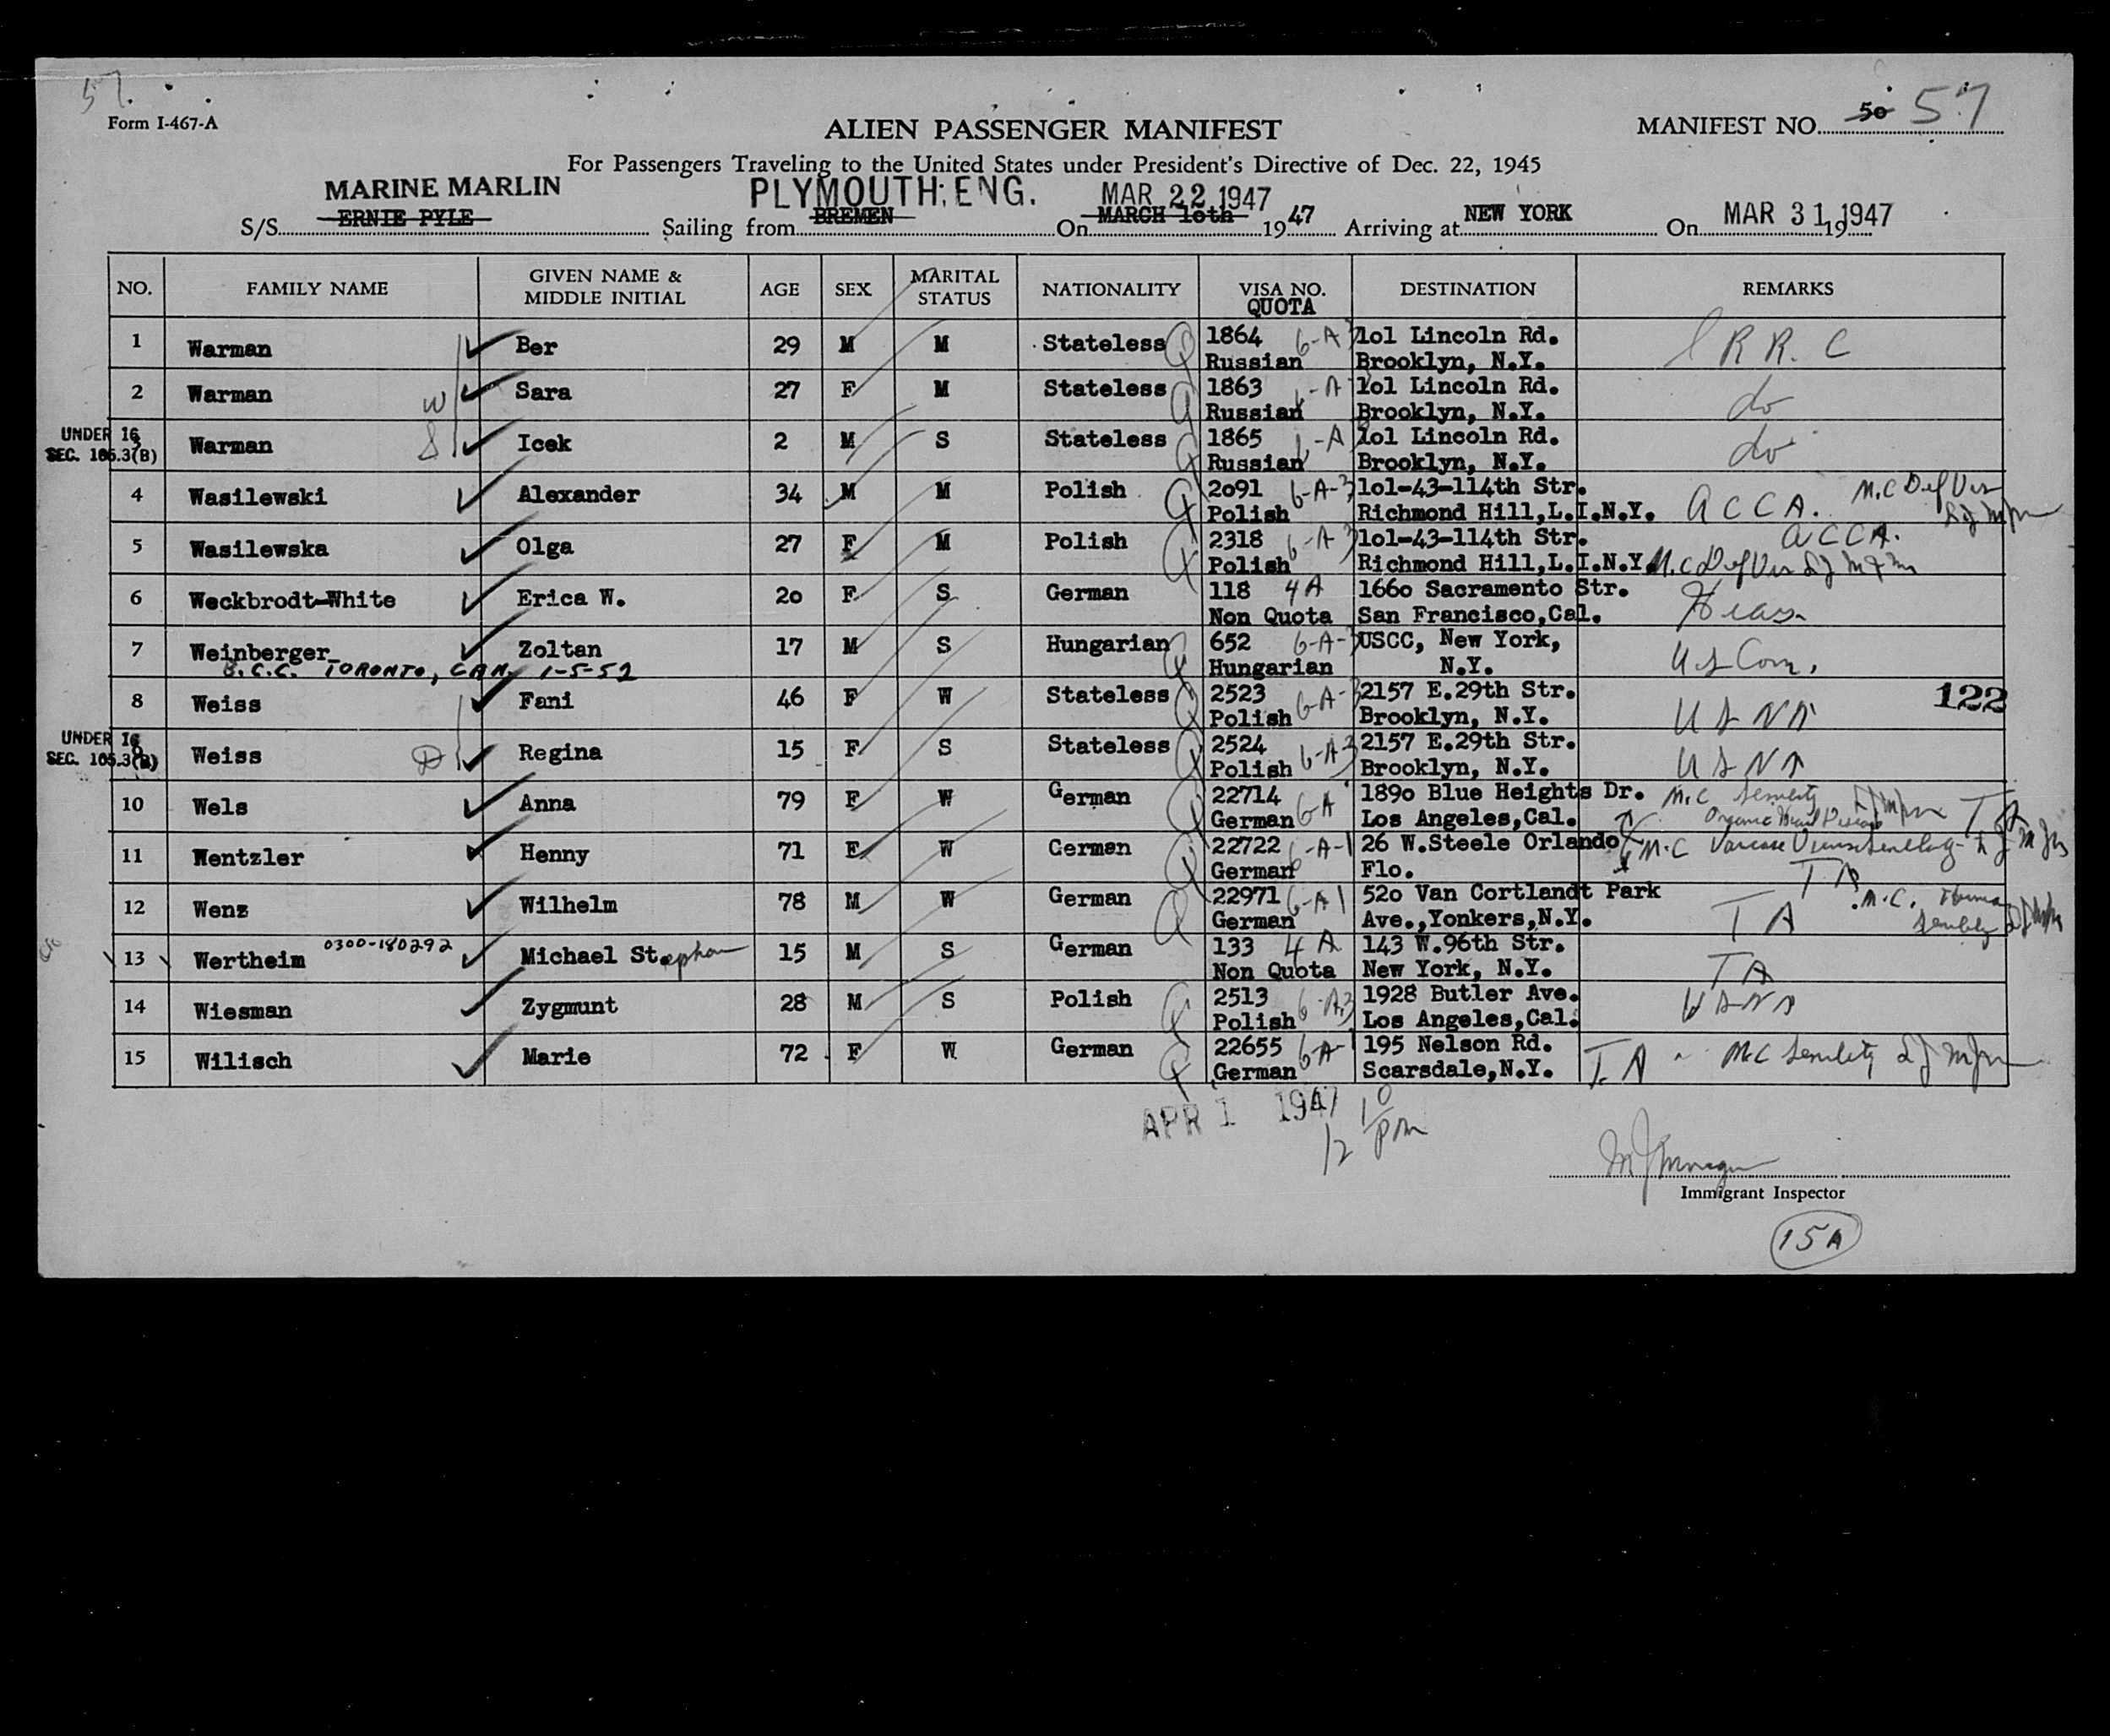 57.
Form I-467-A
ALIEN PASSENGER MANIFEST
MANIFEST NO. 50 57
For Passengers Traveling to the United States under President's Directive of Dec. 22, 1945
MARINE MARLIN PLYMOUTH, ENG. MAR 22 1947
S/S ERNIE PYLE Sailing from BREMEN On MARCH 16th 1947 Arriving at NEW YORK On MAR 31 1947 19
NO. FAMILY NAME GIVEN NAME & MIDDLE INITIAL AGE SEX MARITAL STATUS NATIONALITY VISA NO. QUOTA DESTINATION REMARKS
1 Warman Ber 29 M M Stateless 1864 6-A-3 1o1 Lincoln Rd. I R R. C
Russian Brooklyn, N.Y.
2 Warman W Sara 27 F M Stateless 1863 6-A 1o1 Lincoln Rd. do
Russian Brooklyn, N.Y.
UNDER 16
SEC. 165.3(B)
3 Warman S Icek 2 M S Stateless 1865 6-A 1o1 Lincoln Rd. do
Russian Brooklyn, N.Y.
4 Wasilewski Alexander 34 M M Polish 2o91 6-A-3 1o1-43-114th Str. A C C A. M.C Def Vis
Polish Richmond Hill,L.I.N.Y.
5 Wasilewska Olga 27 F M Polish 2318 6-A 3 1o1-43-114th Str. A C C A.
Polish Richmond Hill,L.I.N.Y. M.C Def Vis
6 Weckbrodt-White Erica W. 2o F S German 118 4A 166o Sacramento Str. Hias
Non Quota San Francisco,Cal.
7 Weinberger Zoltan 17 M S Hungarian 652 6-A-3 USCC, New York, U S Com.
B.C.C. TORONTO, CAN. 1-5-52 Hungarian N.Y.
8 Weiss Fani 46 F W Stateless 2523 6-A-3 2157 E.29th Str. U S N A 122
Polish Brooklyn, N.Y.
UNDER 16
SEC. 165.3(B)
9 Weiss D Regina 15 F S Stateless 2524 6-A-3 2157 E.29th Str. U S N A
Polish Brooklyn, N.Y.
10 Wels Anna 79 F W German 22714 6-A 189o Blue Heights Dr. M.C Senility T A
German Los Angeles,Cal.
11 Wentzler Henny 71 F W German 22722 6-A-1 26 W.Steele Orlando M.C Varicose Veins Senility
German Flo. T A
12 Wenz Wilhelm 78 M W German 22971 6-A 1 52o Van Cortlandt Park T A M.C. Hernia
German Ave.,Yonkers,N.Y. Senility
13 Wertheim 0300-180292 Michael Stephan 15 M S German 133 4 A 143 W.96th Str. T A
Non Quota New York, N.Y.
14 Wiesman Zygmunt 28 M S Polish 2513 6-A3 1928 Butler Ave. U S N A
Polish Los Angeles,Cal.
15 Wilisch Marie 72 F W German 22655 6-A-1 195 Nelson Rd. T. A M.C Senility
German Scarsdale,N.Y.
APR 1 1947 12 10 pm
Immigrant Inspector
15A